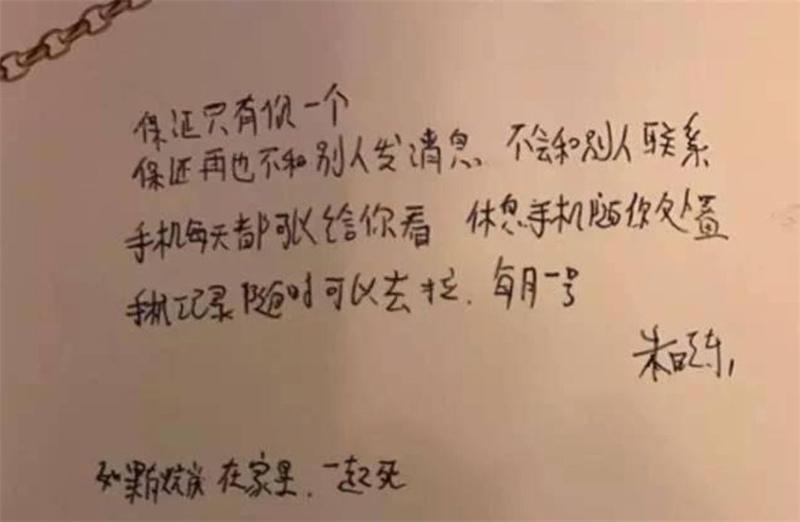 保证只有你一个
保证再也不和别人发消息 不会和别人联系
手机每天都可以给你看 休息手机随你处置
手机记录随时可以去拉.每月一号
朱晓东,
如果有 在家里.一起死